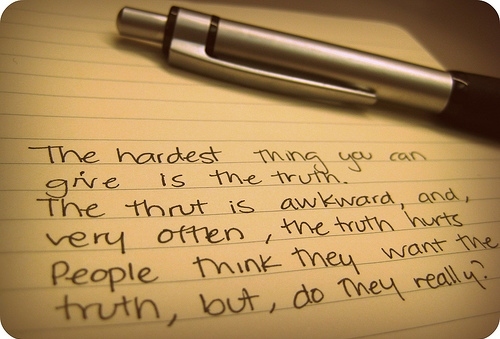 The hardest thing you can
give is the truth.
The thrut is awkward, and,
very often, the truth hurts
People think they want the
truth, but, do they really?